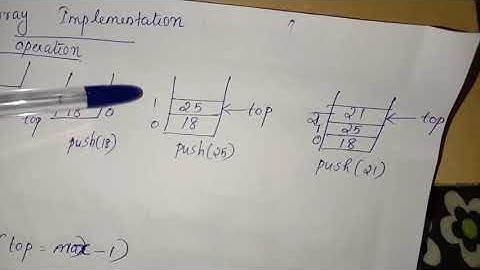 rray Implementation
operation
18 0
top
push(18)
1 25
0 18
top
push(25)
2 21
1 25
0 18
top
push(21)
(top = max - 1)